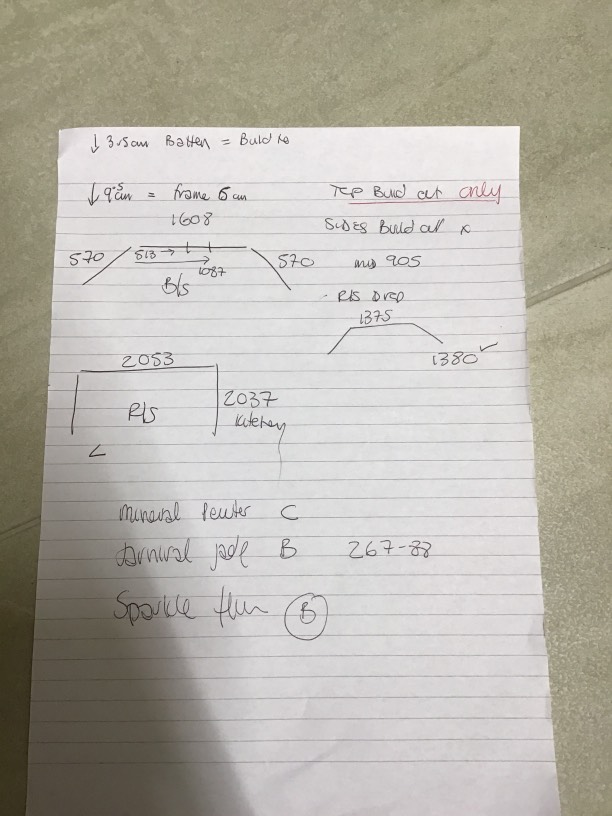 ↓ 3.5cm Batten = Build to
↓ 9.5cm = frame 6 cm
TOP Build out only
1608
SIDES Build out x
570
513 →
1087
570
905
B/s
R/S DROP
1375
1380 ✓
2053
R/S
2037
kitchen
mineral Pewter C
B 267-88
Sparkle B